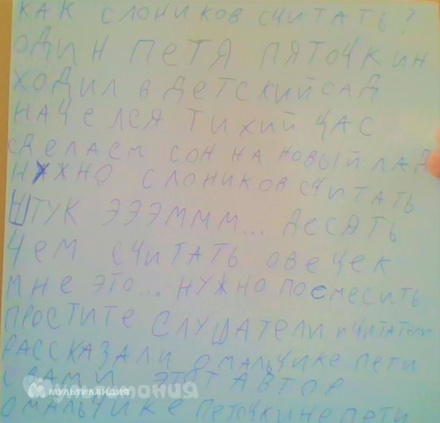 КАК СЛОНИКОВ СЧИТАТЬ?
ОДИН ПЕТЯ ПЯТОЧКИН
ХОДИЛ В ДЕТСКИЙ САД
НАЧЕЛСЯ ТИХИЙ ЧАС
СДЕЛАЕМ СОН НА НОВЫЙ ЛАД
НУЖНО СЛОНИКОВ СЧИТАТЬ
ШТУК ЭЭЭМММ... ДЕСЯТЬ
ЧЕМ СЧИТАТЬ ОВЕЧЕК
МНЕ ЭТО... НУЖНО ПОСМЕСИТЬ
ПРОСТИТЕ СЛУШАТЕЛИ И ЧИТАТЕЛИ
РАССКАЗАЛИ О МАЛЬЧИКЕ ПЕТИ
С ВАМИ ЭТОТ АВТОР
О МАЛЬЧИКЕ ПЕТОЧКИНЕ ПЕТИ
МУЛЬТЛАНДИЯ